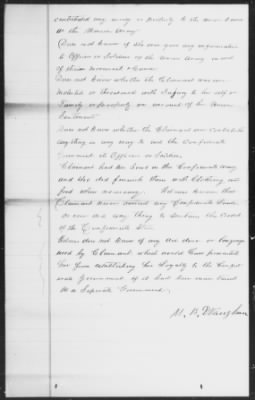 contributed any money or property to the Union Cause
or the Union Army
Does not know if he ever gave any information
to Officers or Soldiers of the Union Army in aid
of their movement
Does not know whether the Claimant was ever
molested or threatened with Injury to himself or
Family or property on account of his Union
Sentiments
Does not know whether the Claimant ever contributed
anything in any way to aid the Confederate
Government its Officers or Soldiers
Claimant had two Sons in the Confederate Army
and she did furnish them with Clothing and
food when necessary. Witness knows that
Claimant never owned any Confederate Bonds
or ever did any thing to sustain the Credit
of the Confederate
Witness does not know of any act done or language
used by Claimant which would have prevented
her from establishing her Loyalty to the Confed-
erate Government if it had been maintained
As a Separate Government